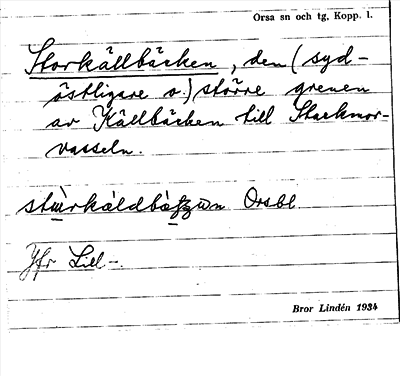 Orsa sn och tg, Kopp. l.
Storkällbäcken, den (syd-
östligare o.) större grenen
av Källbäcken till Starkmor-
vasseln.
Orsbl
Jfr Lill-.
Bror Lindén 1934